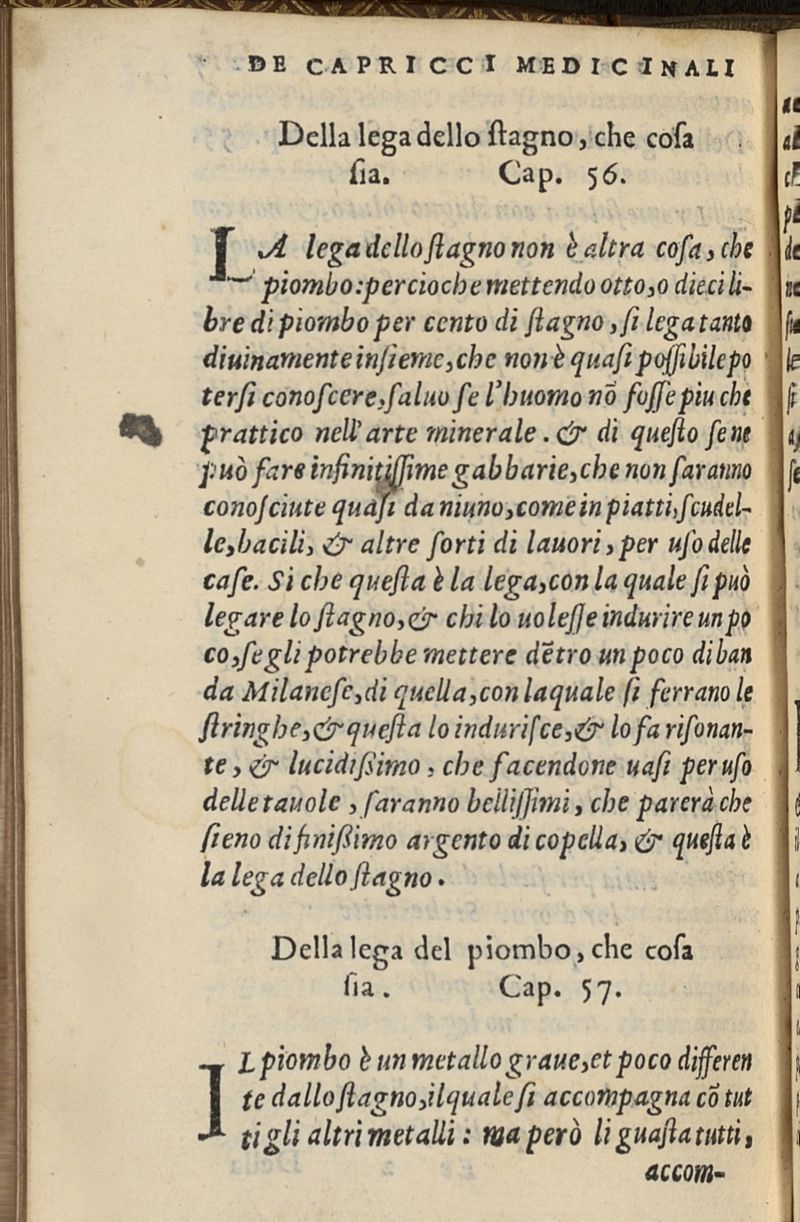 DE CAPRICCI MEDICINALI
Della lega dello ſtagno, che coſa
ſia. Cap. 56.
LA lega dello ſtagno non è altra coſa, che
piombo: percioche mettendo otto, o dieci li-
bre di piombo per cento di ſtagno, ſi lega tanto
diuinamente inſieme, che non è quaſi poſſibile po
terſi conoſcere, ſaluo ſe l'huomo nõ foſſe piu che
prattico nell'arte minerale. & di queſto ſe ne
può fare infinitiſſime gabbarie, che non ſaranno
conoſciute quaſi da niuno, come in piatti, ſcudel-
le, bacili, & altre ſorti di lauori, per uſo delle
caſe. Si che queſta è la lega, con la quale ſi può
legare lo ſtagno, & chi lo uoleſſe indurire un po
co, ſe gli potrebbe mettere dẽtro un poco di ban
da Milaneſe, di quella, con laquale ſi ferrano le
ſtringhe, & queſta lo induriſce, & lo fa riſonan-
te, & lucidißimo, che facendone uaſi per uſo
delle tauole, ſaranno belliſſimi, che parerà che
ſieno di finißimo argento di copella, & queſta è
la lega dello ſtagno.
Della lega del piombo, che coſa
ſia. Cap. 57.
IL piombo è un metallo graue, et poco differen
te dallo ſtagno, ilquale ſi accompagna cõ tut
ti gli altri metalli: ma però li guaſta tutti,
accom-